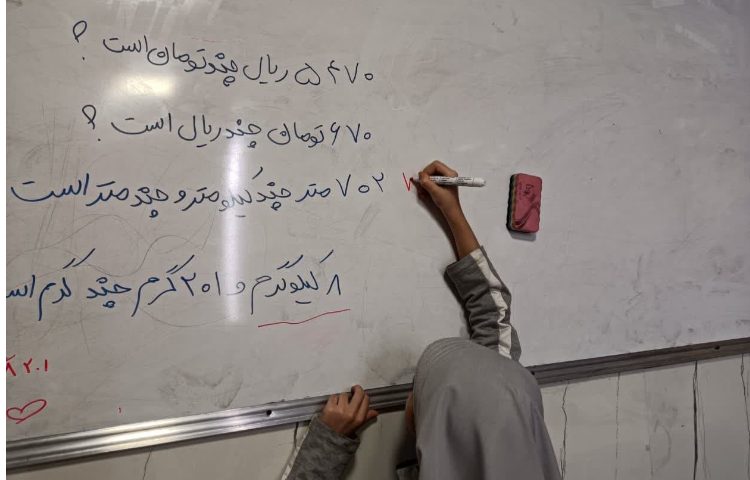 ۵۴۷۰ ریال چند تومان است ؟
۶۷۰ تومان چند ریال است ؟
۷۰۲ متر چند کیلومتر و چند متر است
۸ کیلوگرم و ۲۰۱ گرم چند گرم اس
۸۲۰۱